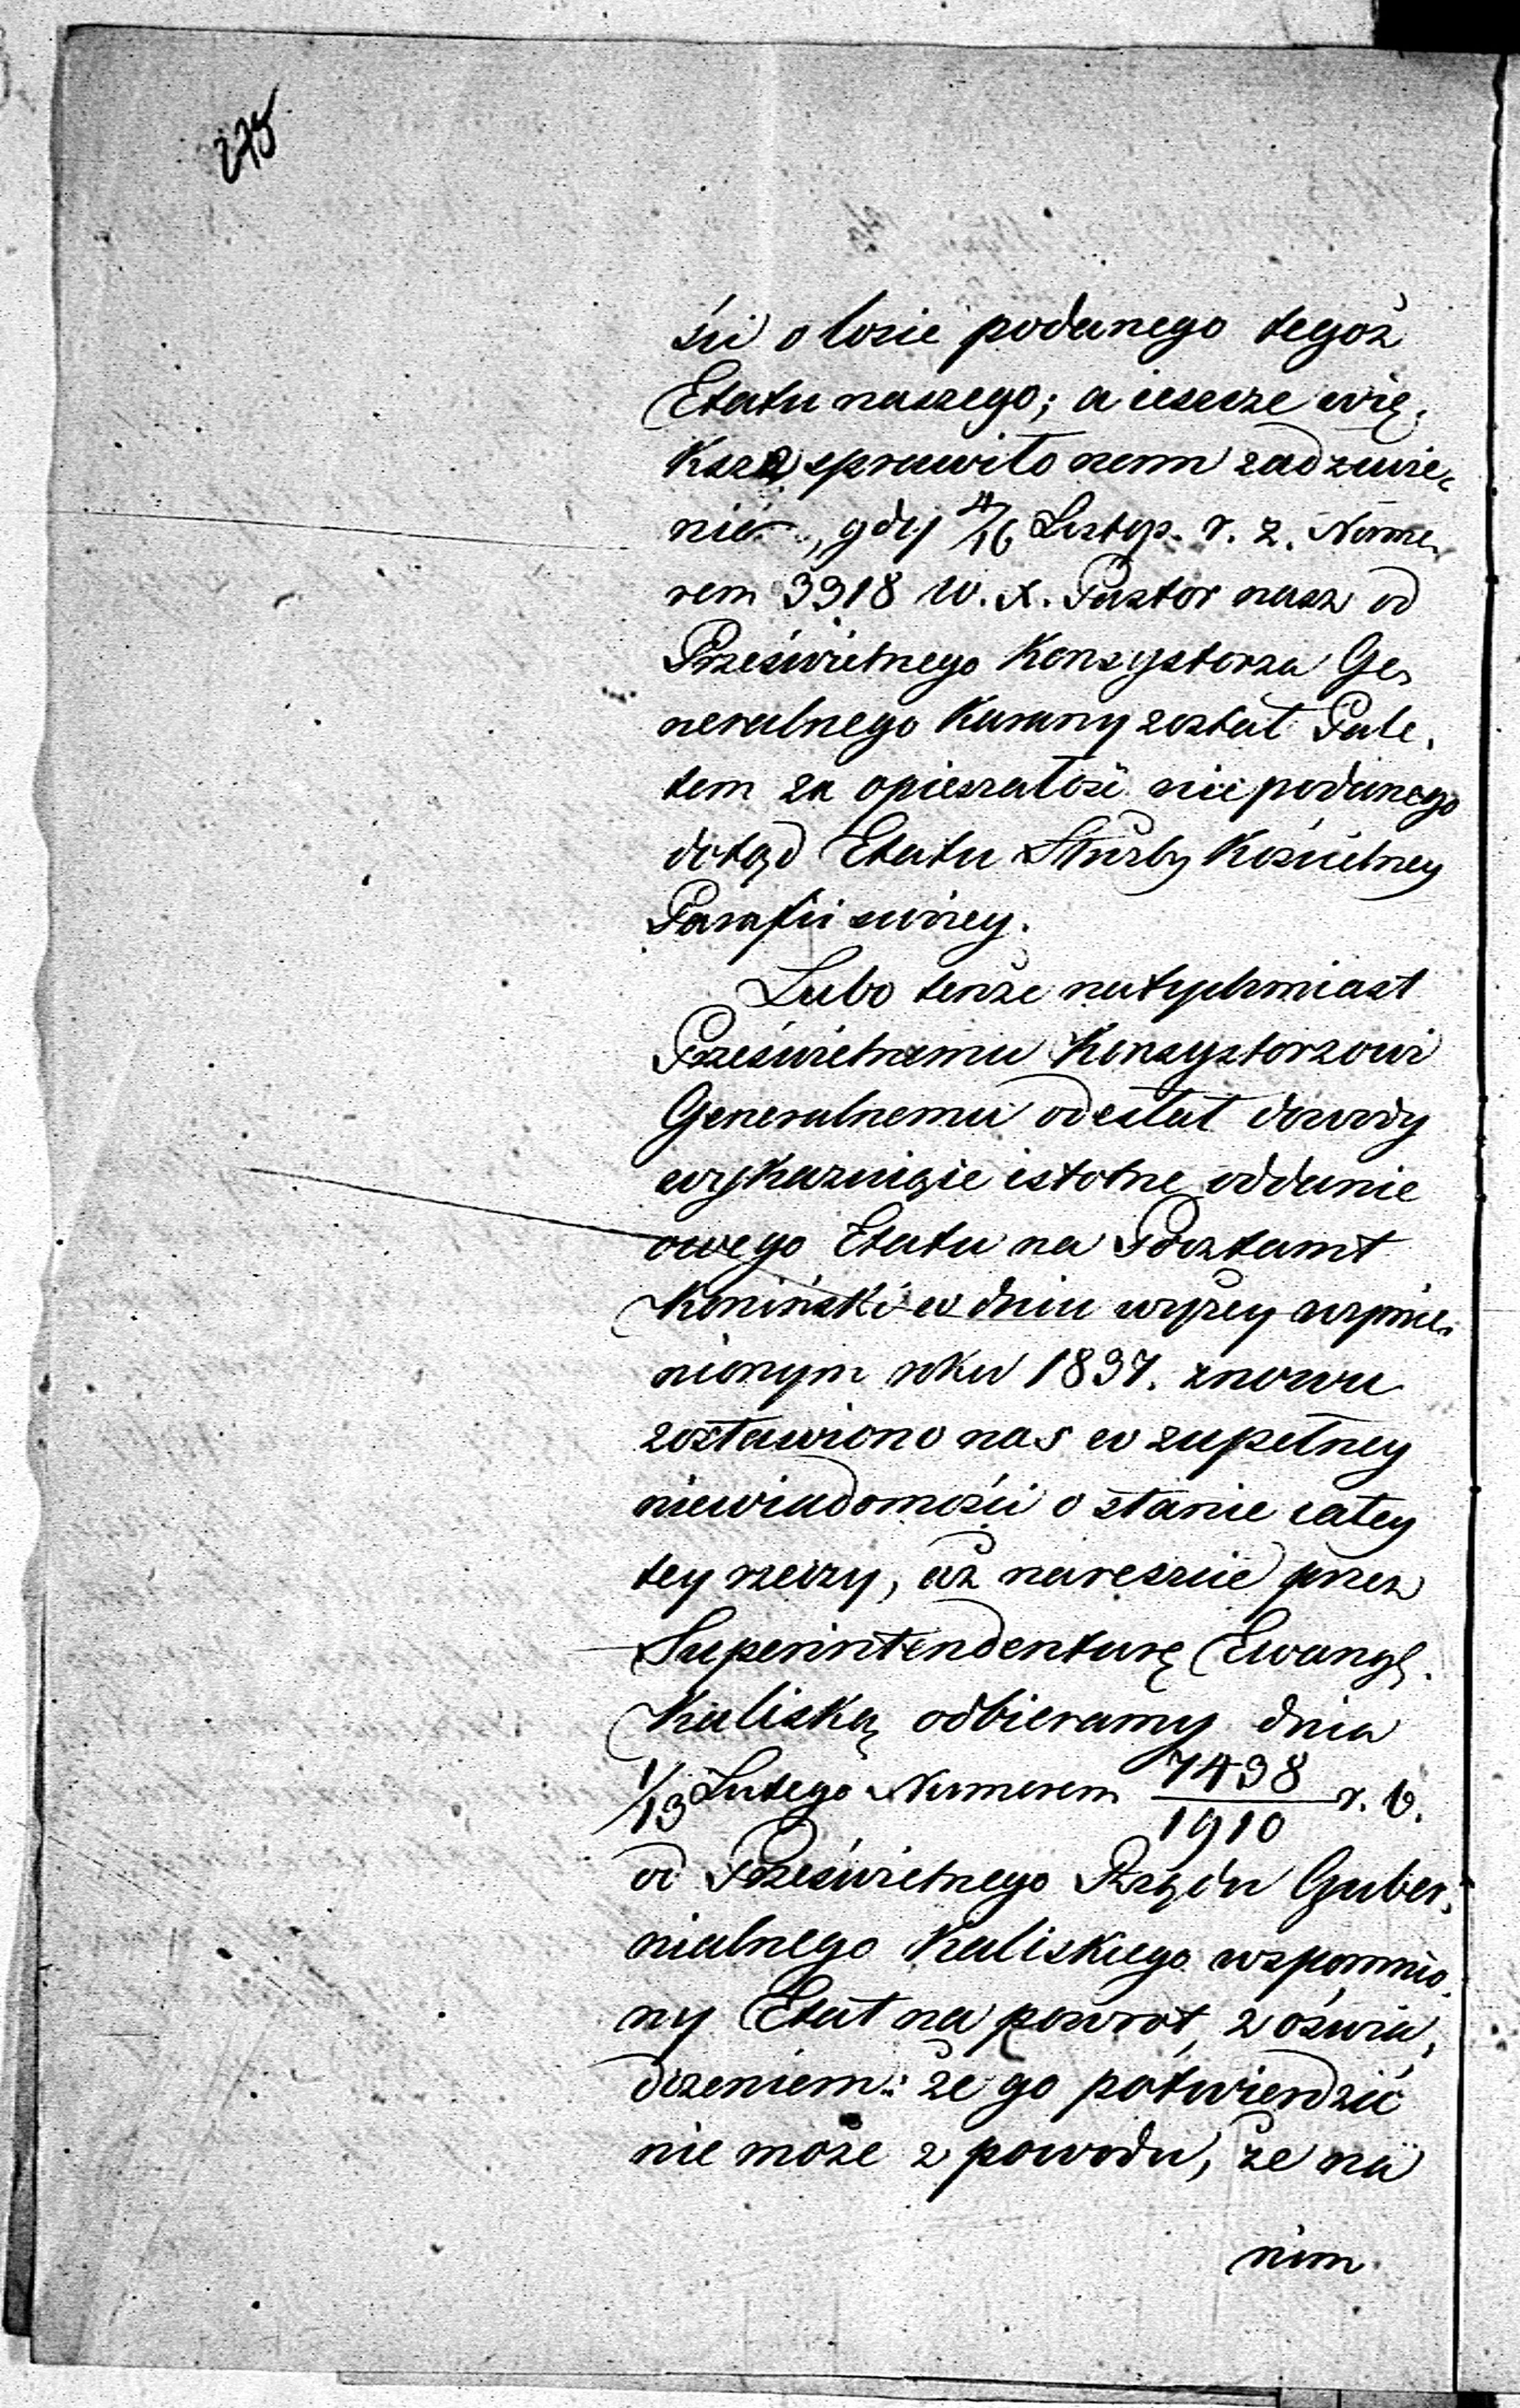 275
ści o losie podanego tegoż
Etatu naszego; a ieszcze wię,
ksze sprawiło nam zadziwie,
nie, gdy 4/16 Listop. r. z. Nume,
rem 3318 W. X. Pastor nasz od
Prześwietnego Konsystorza Ge,
neralnego karany został Pale,
tem za opieszałość nie podanego
dotąd Etatu Służby Kościelney
Parafii swóiey.
Lubo tenże natychmiast
Prześwietnemu Konsystorzowi
Generalnemu odesłał dowody
wykazuiące istotne oddanie
owego Etatu na Pocztamt
Koniński w dniu wyżey wzmie,
nionym roku 1837. znowu
zostawiono nas w zupełney
niewiadomości o stanie całey
tey rzeczy, aż nareszcie przez
Superintendenturę Ewang.
Kaliską odbieramy dnia
1/13 Lutego Numerem 7438/1910 r. b.
od Prześwietnego Rządu Guber,
nialnego Kaliskiego wspomnio,
ny Etat na powrót, z oświa,
dczeniem: że go potwierdzić
nie może z powodu, że na
nim